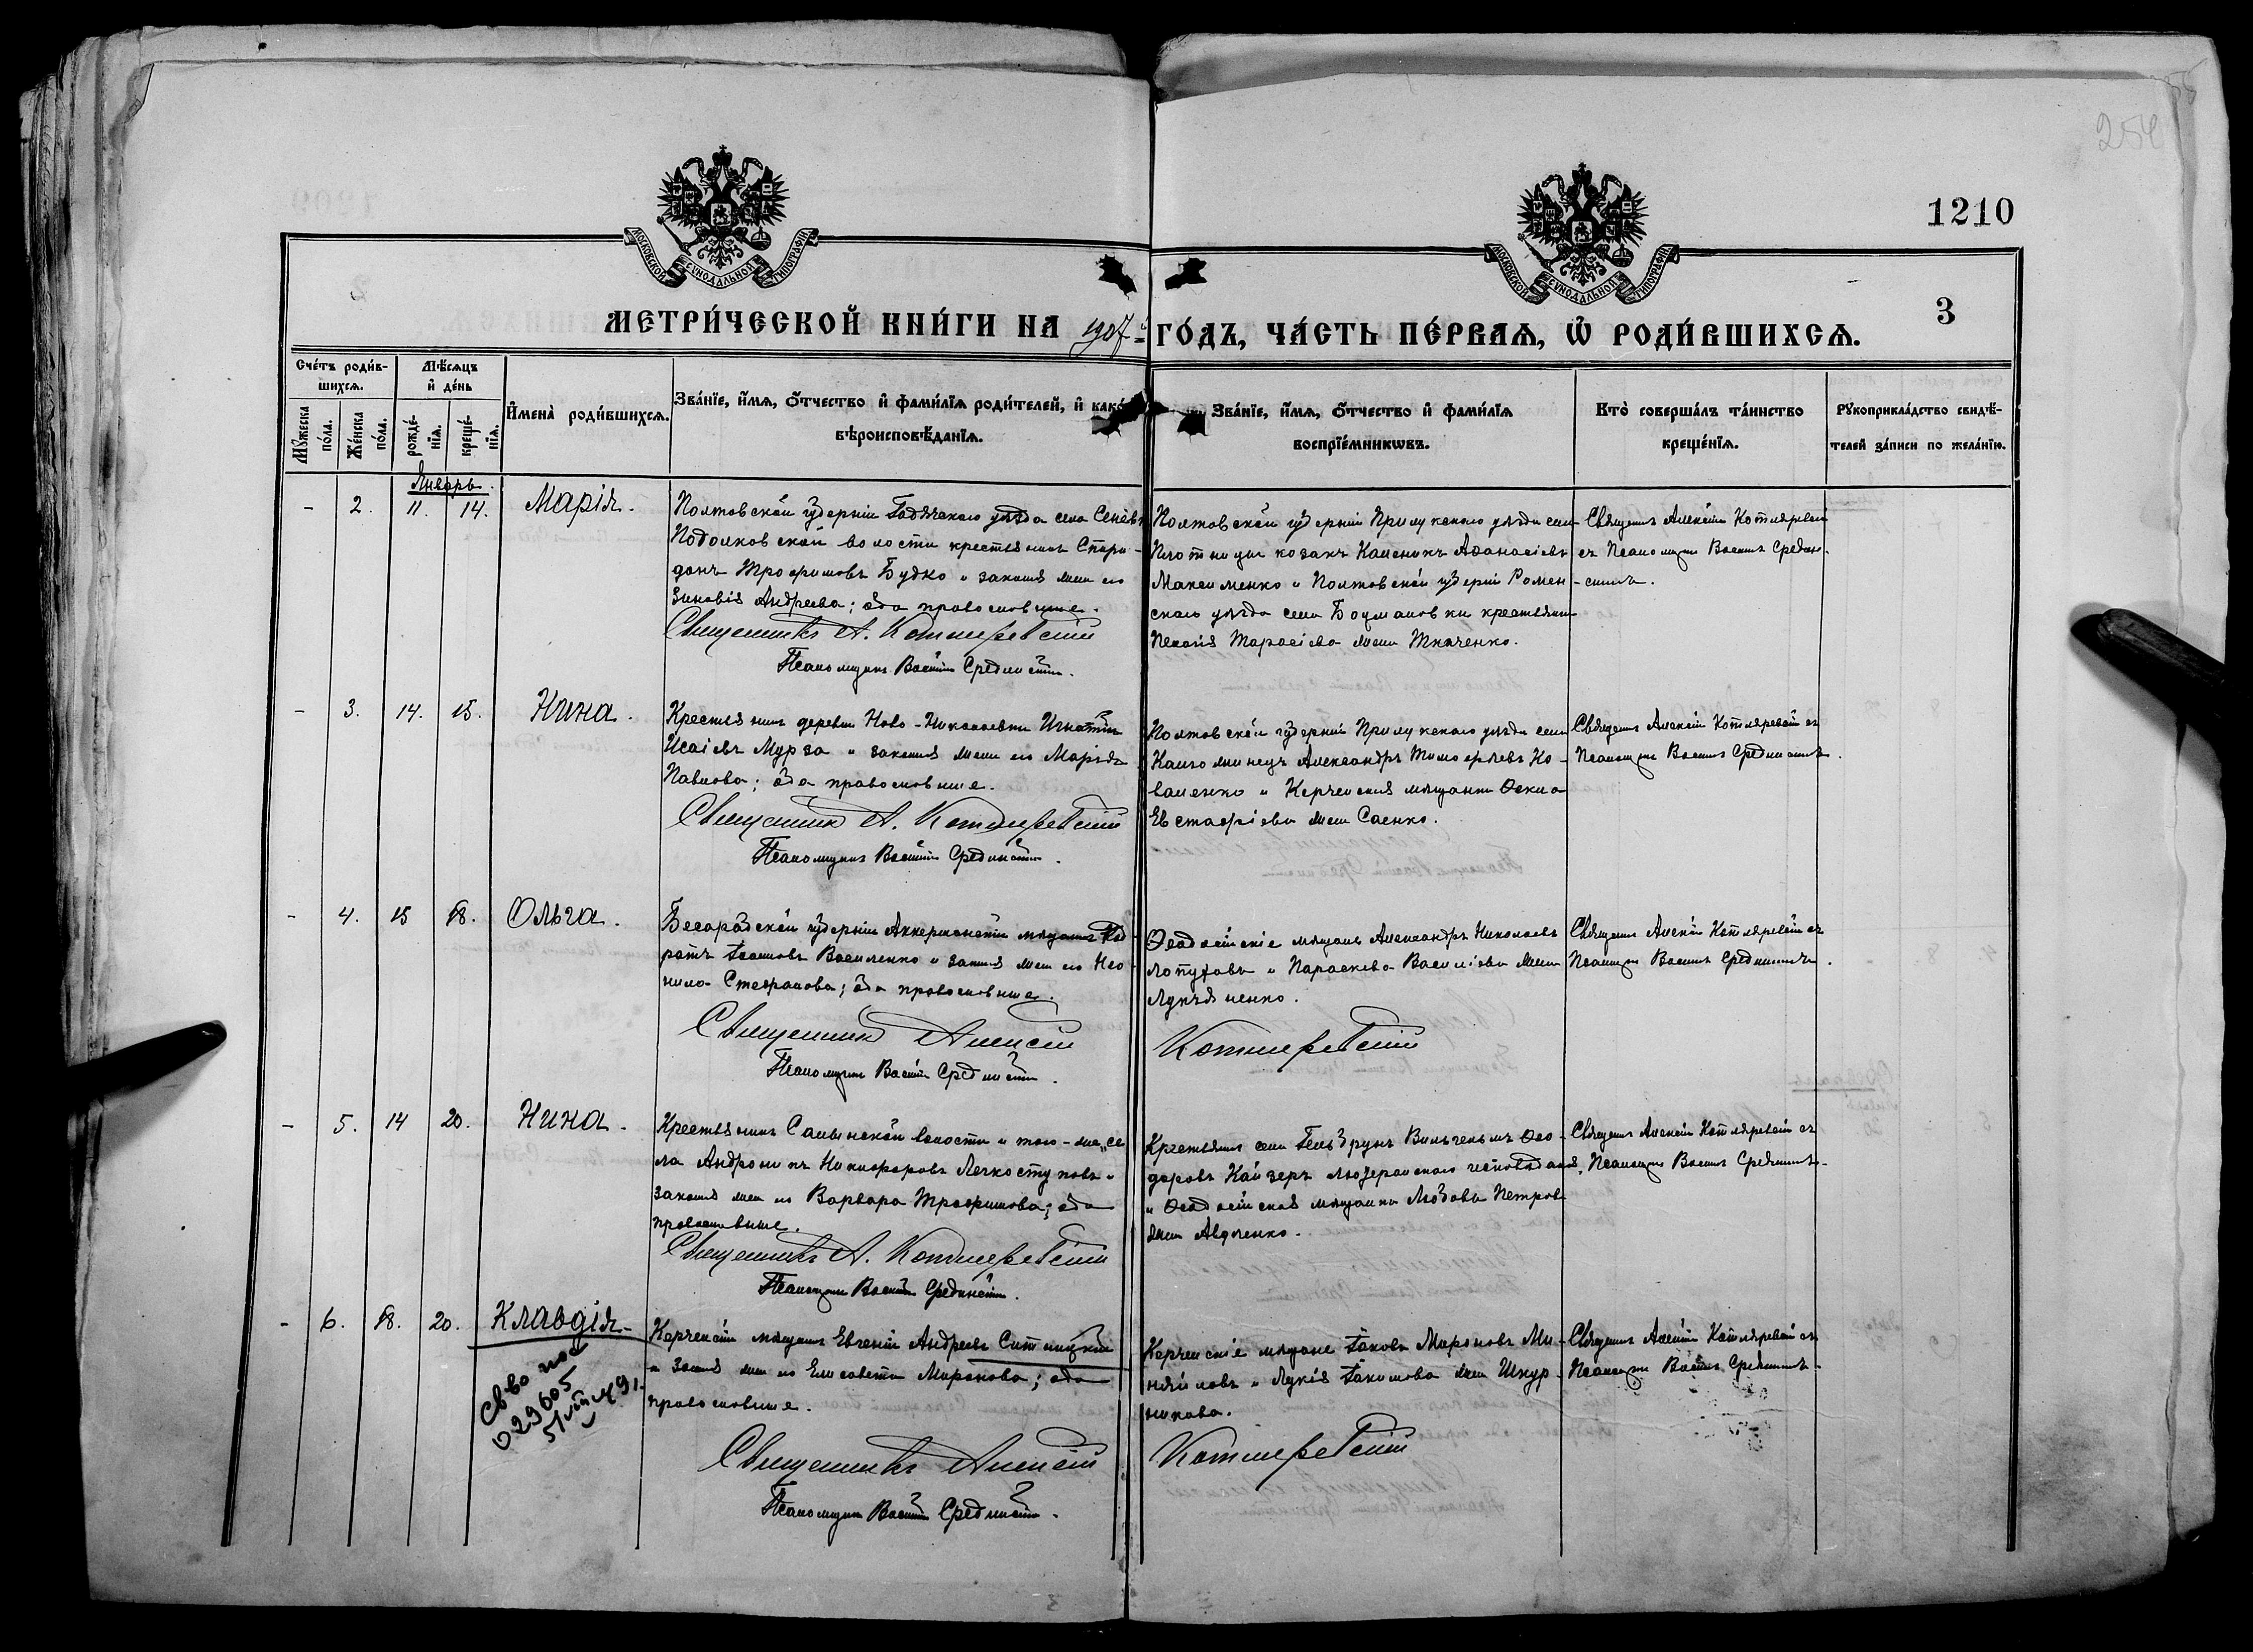 254
1210
МОСКОВСКОЙ СѴНОДАЛЬНОЙ ТИПОГРАФІИ
МОСКОВСКОЙ СѴНОДАЛЬНОЙ ТИПОГРАФІИ
3
МЕТРИ́ЧЕСКОЙ КНИ́ГИ НА 1907-й ГО́ДЪ, ЧА́СТЬ ПЕ́РВАѦ, Ѿ РОДИ́ВШИХСѦ.
Сче́тъ роди́в-
шихсѧ.
Мꙋжеска по́ла.
Же́нска по́ла.
Мѣ́сѧцъ и҆ де́нь
рожде́-нїѧ.
креще́-нїѧ.
И҆мена̀ роди́вшихсѧ.
Зва́нїе, и҆́мѧ, ѻ҆́тчество и҆ фами́лїѧ роди́телей, и҆ како́
вѣроисповѣ́данїѧ.
Зва́нїе, и҆́мѧ, ѻ҆́тчество и҆ фами́лїѧ
воспрїе́мникѡвъ.
Кто̀ соверша́лъ та́инство
креще́нїѧ.
Рꙋкоприкла́дство свидѣ́-
телей за́писи по жела́нїю.
Январь.
- 2. 11. 14. Марія.
Полтовской губерніи Гадячскаго уѣзда села
Подолковской волости крестьянинъ Спири-
донъ Трофимовъ Будко и законная жена его
Зиновія Андреева; оба православные.
Священникъ А. Котляревскій
Псаломщикъ Василій Срединскій.
Полтовской губерніи Прилукскаго уѣзда села
козакъ Калиникъ Аѳанасіевъ
Максименко и Полтовской губерніи Ромен-
скаго уѣзда села крестьянка
Пелагія Тарасіева жена Ткаченко.
Священникъ Алексій Котляревскій
съ Псаломщикомъ Василіемъ Средин-
скимъ.
- 3. 14. 15. Нина.
Крестьянинъ деревни Ново-Николаевки Игнатій
Исаіевъ Мурза и законная жена его Марія
Павлова; оба православные.
Священникъ А. Котляревскій
Псаломщикъ Василій Срединскій.
Полтовской губерніи Прилукскаго уѣзда села
Александръ Тимофѣевъ Ко-
валенко и Керченская мѣщанка Ѳекла
Евстафіева жена Саенко.
Священникъ Алексій Котляревскій съ
Псаломщикомъ Василіемъ Срединскимъ.
- 4. 15 18. Ольга.
Бесарабской губерніи Аккерманскій мѣщанинъ Код-
ратъ Василенко и законная жена его Нео-
нила Стефанова; оба православные.
Священникъ Алексій
Псаломщикъ Василій Срединскій.
Ѳеодосійскіе мѣщане Александръ Николаевъ
Лопуховъ и Параскева Василіева жена
Лукьяненко.
Котляревскій
Священникъ Алексій Котляревскій съ
Псаломщикомъ Василіемъ Срединскимъ.
- 5. 14 20. Нина.
Крестьянинъ волости и того-же се-
ла Андроникъ Никифоровъ Легкоступовъ и
законная жена его Варвара Трофимова; оба
православные.
Священникъ А. Котляревскій
Псаломщикъ Василій Срединскій.
Крестьянинъ села Вильгельмъ Ѳео-
доровъ Кайзеръ лютеранскаго исповѣданія
и Ѳеодосійская мѣщанка Любовь Петрова
жена Авдѣенко.
Священникъ Алексій Котляревскій съ
Псаломщикомъ Василіемъ Срединскимъ.
- 6. 18. 20. Клавдія.
Керченскій мѣщанинъ Евгеній Андреевъ Ситницкій
и законная жена его Елисавета Миронова; оба
православные.
Священникъ Алексій
Псаломщикъ Василій Срединскій.
Керченскіе мѣщане Іаковъ Мироновъ Ми-
хайловъ и Лукія Іакимова жена Шкур-
никова.
Котляревскій
Священникъ Алексій Котляревскій съ
Псаломщикомъ Василіемъ Срединскимъ.
029605